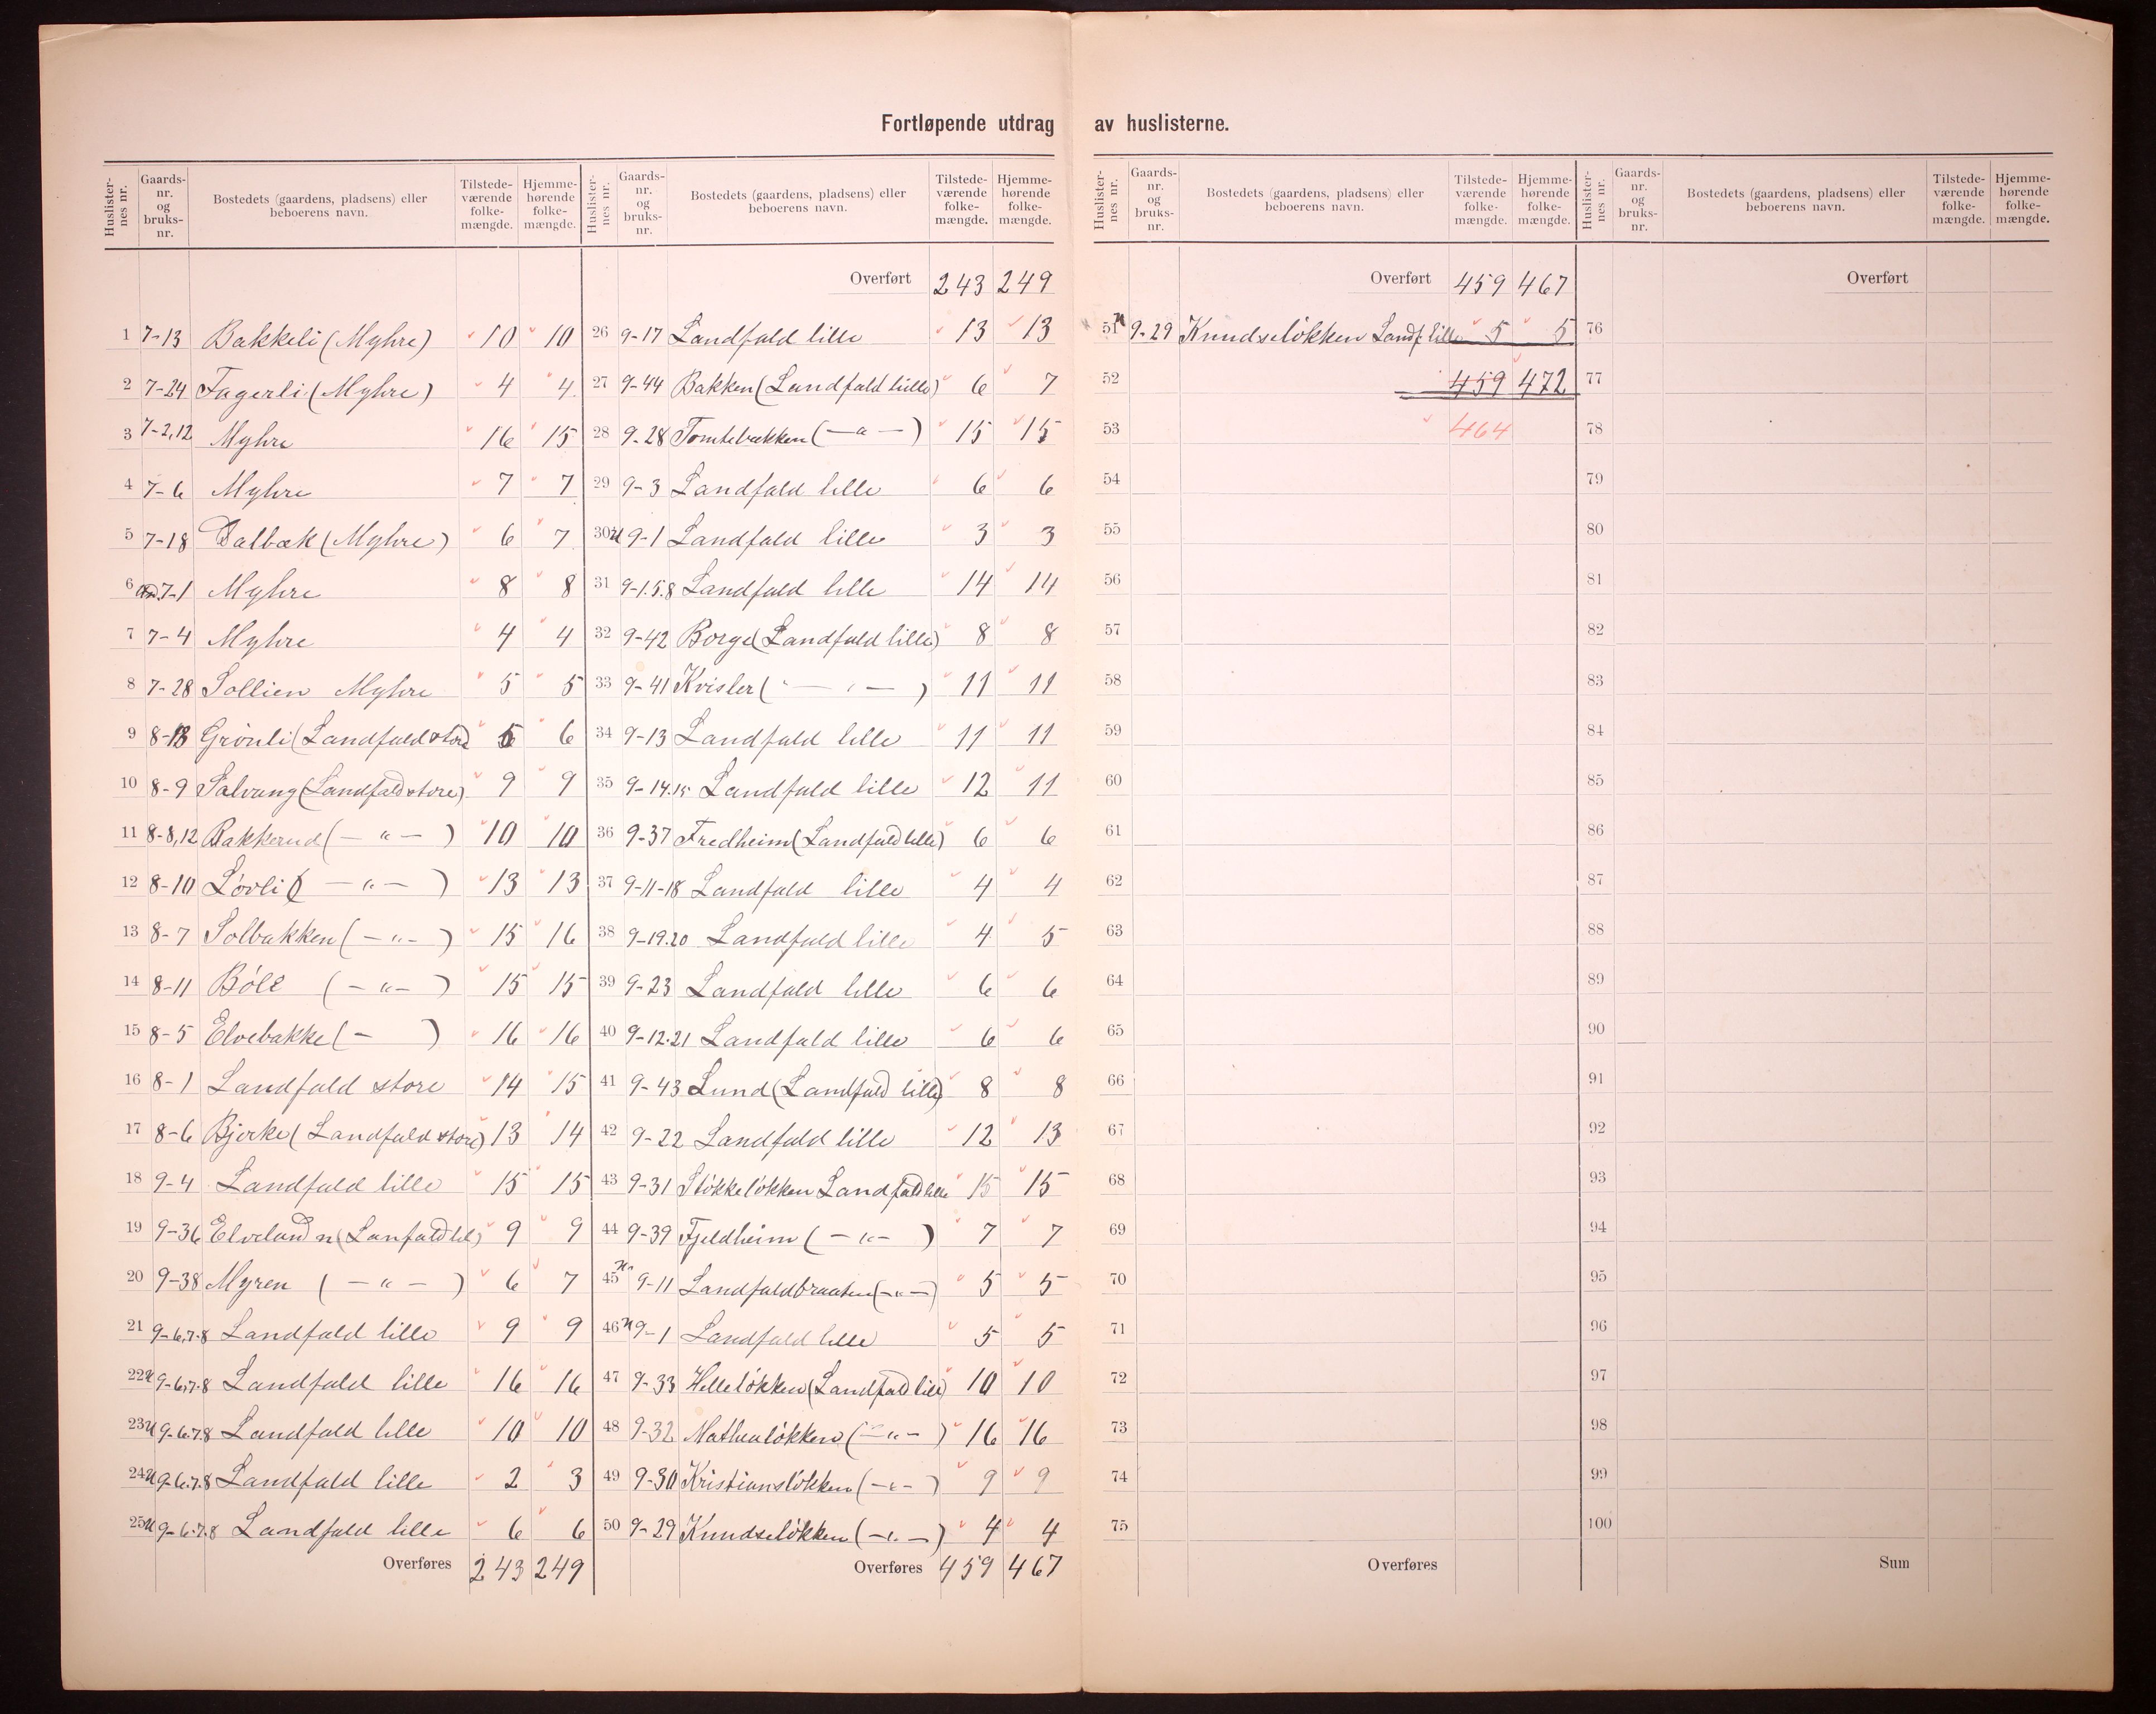 Fortløpende utdrag av huslisterne.
Huslisternes nr. Gaards-nr. og bruks-nr. Bostedets (gaardens, pladsens) eller beboerens navn. Tilstedeværende folkemængde. Hjemmehørende folkemængde.
1 7-13 Bakkeli (Myhre) 10 10
2 7-24 Fagerli (Myhre) 4 4
3 7-2,12 Myhre 16 15
4 7-6 Myhre 7 7
5 7-18 Dalbæk (Myhre) 6 7
6 7-1 Myhre 8 8
7 7-4 Myhre 4 4
8 7-28 Sollien Myhre 5 5
9 8-13 Grönli (Landfald store 5 6
10 8-9 Salvang (Landfald store) 9 9
11 8-8,12 Bakkerud (—"—) 10 10
12 8-10 Lövli (—"—) 13 13
13 8-7 Solbakken (—"—) 15 16
14 8-11 Böle (—"—) 15 15
15 8-5 Elvebakke (— ) 16 16
16 8-1 Landfald store 14 15
17 8-6 Bjerke (Landfald store) 13 14
18 9-4 Landfald lille 15 15
19 9-36 Elvelund n (Lanfald lil) 9 9
20 9-38 Myren (—"—) 6 7
21 9-6,7.8 Landfald lille 9 9
22 9-6,7.8 Landfald lille 16 16
23 9-6.7.8 Landfald lille 10 10
24 9-6.7.8 Landfald lille 2 3
25 9-6.7.8 Landfald lille 6 6
Overføres 243 249
Huslisternes nr. Gaards-nr. og bruks-nr. Bostedets (gaardens, pladsens) eller beboerens navn. Tilstedeværende folkemængde. Hjemmehørende folkemængde.
Overført 243 249
26 9-17 Landfald lille 13 13
27 9-44 Bakken (Landfald lille) 6 7
28 9-28 Tomtebakken (—"—) 15 15
29 9-3 Landfald lille 6 6
30 9-1 Landfald lille 3 3
31 9-1.5.8 Landfald lille 14 14
32 9-42 Borge (Landfald lille) 8 8
33 9-41 Kvisler (—"—) 11 11
34 9-13 Landfald lille 11 11
35 9-14.15 Landfald lille 12 11
36 9-37 Fredheim (Landfald lille) 6 6
37 9-11-18 Landfald lille 4 4
38 9-19.20 Landfald lille 4 5
39 9-23 Landfald lille 6 6
40 9-12.21 Landfald lille 6 6
41 9-43 Lund (Landfald lille) 8 8
42 9-22 Landfald lille 12 13
43 9-31 Stökkelökken Landfald lille 15 15
44 9-39 Fjeldheim (—"—) 7 7
45 9-11 Landfaldbraaten (—"—) 5 5
46 9-1 Landfald lille 5 5
47 9-33 Hellelökken (Landfald lille) 10 10
48 9-32 Mathealökken (—"—) 16 16
49 9-30 Kristianslökken (—"—) 9 9
50 9-29 Knudselökken (—"—) 4 4
Overføres 459 467
Huslisternes nr. Gaards-nr. og bruks-nr. Bostedets (gaardens, pladsens) eller beboerens navn. Tilstedeværende folkemængde. Hjemmehørende folkemængde.
Overført 459 467
51 9-29 Knudselökken Landf. lille 5 5
52 459 472
53 464
54
55
56
57
58
59
60
61
62
63
64
65
66
67
68
69
70
71
72
73
74
75
Overføres
Huslisternes nr. Gaards-nr. og bruks-nr. Bostedets (gaardens, pladsens) eller beboerens navn. Tilstedeværende folkemængde. Hjemmehørende folkemængde.
Overført
76
77
78
79
80
81
82
83
84
85
86
87
88
89
90
91
92
93
94
95
96
97
98
99
100
Sum